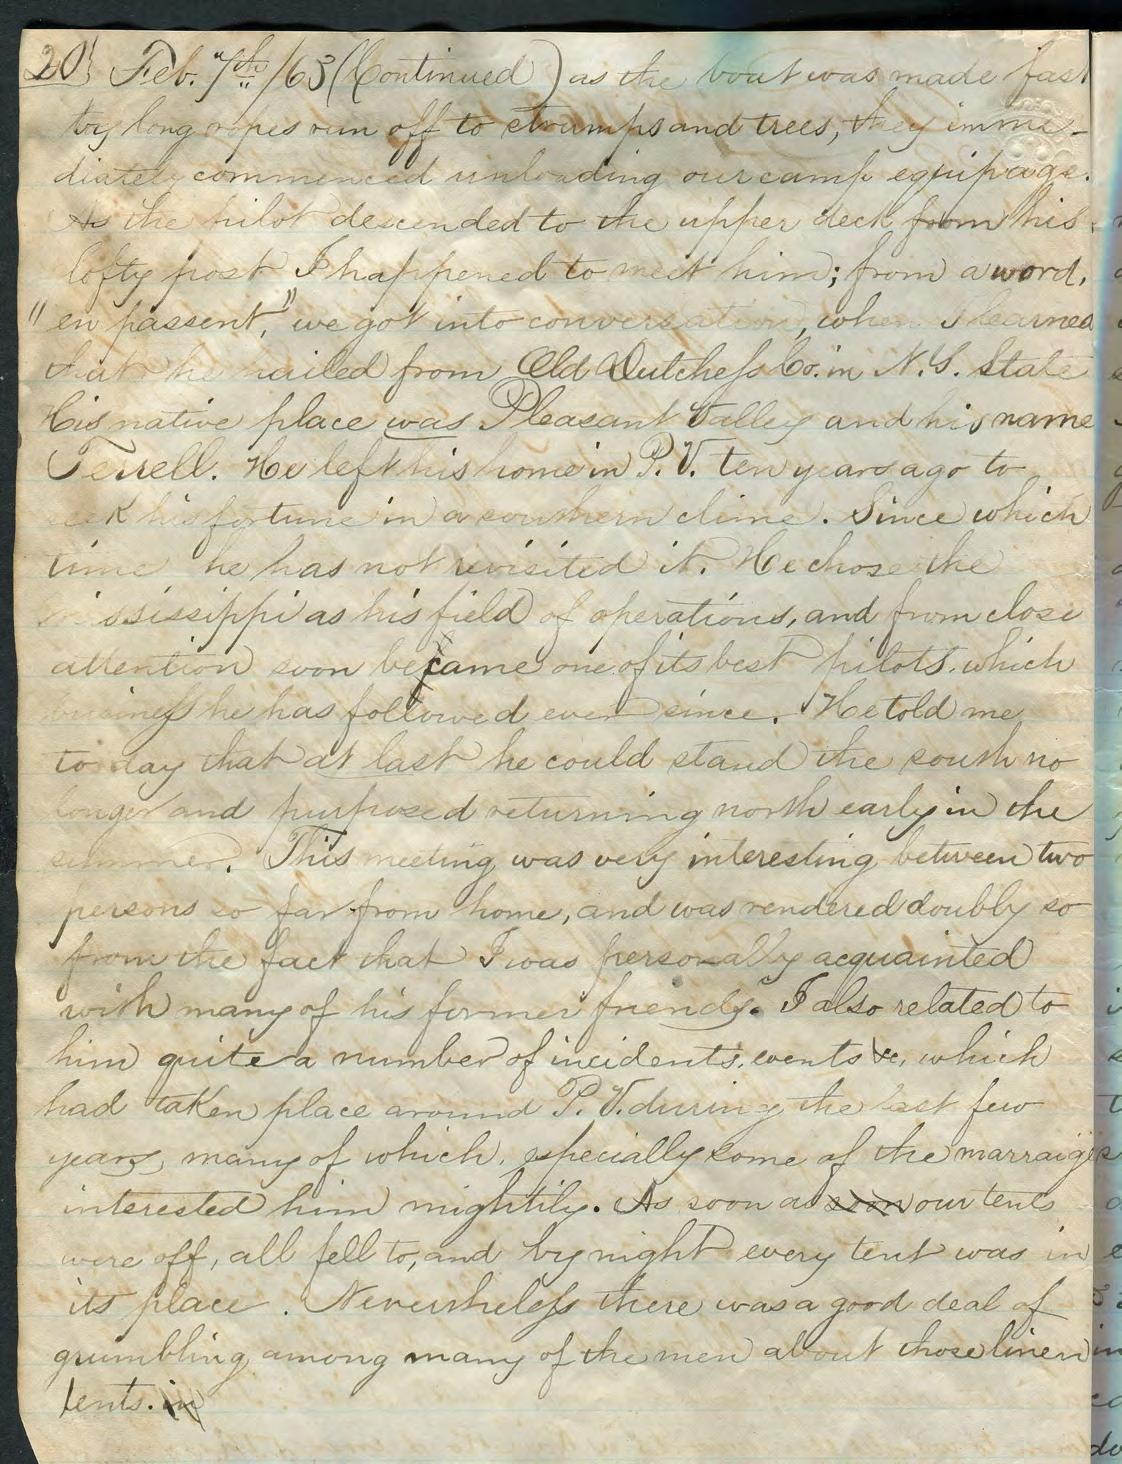 20} Feb. 7th /63 (Continued) as the boat was made fast
by long ropes run off to strumps and trees, they imme-
diately commenced unloading our camp equipage.
As the pilot descended to the upper deck from his
lofty post I happened to meet him; from a word,
"en passent," we got into conversation, when I learned
that he hailed from Old Dutchess Co. in N.Y. State
His native place was Pleasant Valley and his name
Terrell. He left his home in P.V. ten years ago to
seek his fortune in a southern clime. Since which
time he has not revisited it. He chose the
Mississippi as his field of operations, and from close
attention soon became one of its best pilots, which
business he has followed ever since. He told me
to day that at last he could stand the south no
longer and purposed returning north early in the
summer. This meeting was very interesting between two
persons so far from home, and was rendered doubly so
from the fact that I was personally acquainted
with many of his former friends. I also related to
him quite a number of incidents, events &c, which
had taken place around P.V. during the last few
years, many of which, especially some of the marraiges
interested him mightily. As soon as soon our tents
were off, all fell to, and by night every tent was in
its place. Nevertheless there was a good deal of
grumbling among many of the men about those linen
tents. in